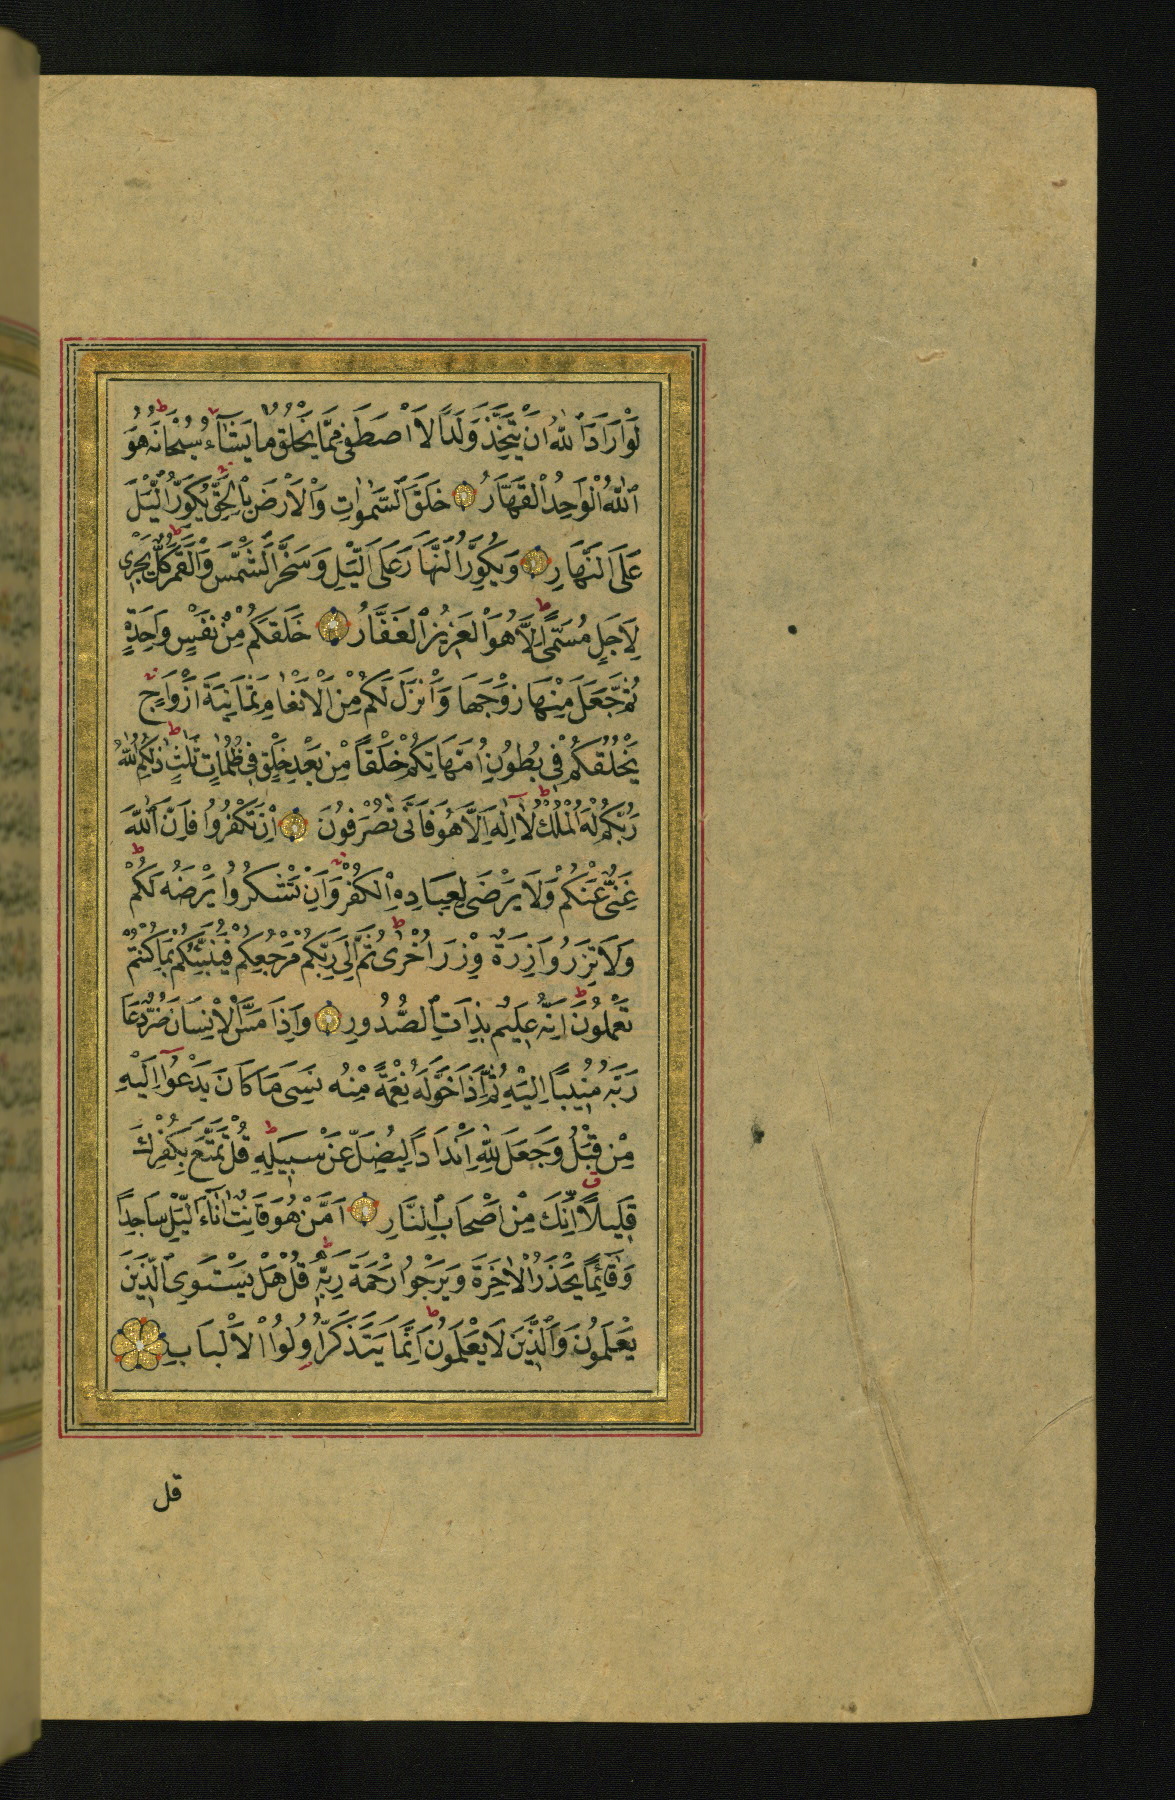 لَوْ اَرَادَ اللّٰهُ اَنْ يَتَّخِذَ وَلَدًا لَاصْطَفٰى مِمَّا يَخْلُقُ مَا يَشَٓاءُ سُبْحَانَهُ هُوَ
اللّٰهُ الْوَاحِدُ الْقَهَّارُ خَلَقَ السَّمٰوَاتِ وَالْاَرْضَ بِالْحَقِّ يُكَوِّرُ الَّيْلَ
عَلَى النَّهَارِ وَيُكَوِّرُ النَّهَارَ عَلَى الَّيْلِ وَسَخَّرَ الشَّمْسَ وَالْقَمَرَ كُلٌّ يَجْرِى
لِاَجَلٍ مُسَمًّى اَلَا هُوَ الْعَزِيزُ الْغَفَّارُ خَلَقَكُمْ مِنْ نَفْسٍ وَاحِدَةٍ
ثُمَّ جَعَلَ مِنْهَا زَوْجَهَا وَاَنْزَلَ لَكُمْ مِنَ الْاَنْعَامِ ثَمَانِيَةَ اَزْوَاجٍ
يَخْلُقُكُمْ فِى بُطُونِ اُمَّهَاتِكُمْ خَلْقًا مِنْ بَعْدِ خَلْقٍ فِى ظُلُمَاتٍ ثَلٰثٍ ذٰلِكُمُ اللّٰهُ
رَبُّكُمْ لَهُ الْمُلْكُ لَٓا اِلٰهَ اِلَّا هُوَ فَاَنّٰى تُصْرَفُونَ اِنْ تَكْفُرُوا فَاِنَّ اللّٰهَ
غَنِىٌّ عَنْكُمْ وَلَا يَرْضٰى لِعِبَادِهِ الْكُفْرَ وَاِنْ تَشْكُرُوا يَرْضَهُ لَكُمْ
وَلَا تَزِرُ وَازِرَةٌ وِزْرَ اُخْرٰى ثُمَّ اِلٰى رَبِّكُمْ مَرْجِعُكُمْ فَيُنَبِّئُكُمْ بِمَا كُنْتُمْ
تَعْمَلُونَ اِنَّهُ عَلِيمٌ بِذَاتِ الصُّدُورِ وَاِذَا مَسَّ الْاِنْسَانَ ضُرٌّ دَعَا
رَبَّهُ مُنِيبًا اِلَيْهِ ثُمَّ اِذَا خَوَّلَهُ نِعْمَةً مِنْهُ نَسِىَ مَا كَانَ يَدْعُٓوا اِلَيْهِ
مِنْ قَبْلُ وَجَعَلَ لِلّٰهِ اَنْدَادًا لِيُضِلَّ عَنْ سَبِيلِهِ قُلْ تَمَتَّعْ بِكُفْرِكَ
قَلِيلًا اِنَّكَ مِنْ اَصْحَابِ النَّارِ اَمَّنْ هُوَ قَانِتٌ اٰنَٓاءَ الَّيْلِ سَاجِدًا
وَقَائِمًا يَحْذَرُ الْاٰخِرَةَ وَيَرْجُوا رَحْمَةَ رَبِّهِ قُلْ هَلْ يَسْتَوِى الَّذِينَ
يَعْلَمُونَ وَالَّذِينَ لَا يَعْلَمُونَ اِنَّمَا يَتَذَكَّرُ اُولُوا الْاَلْبَابِ
قل